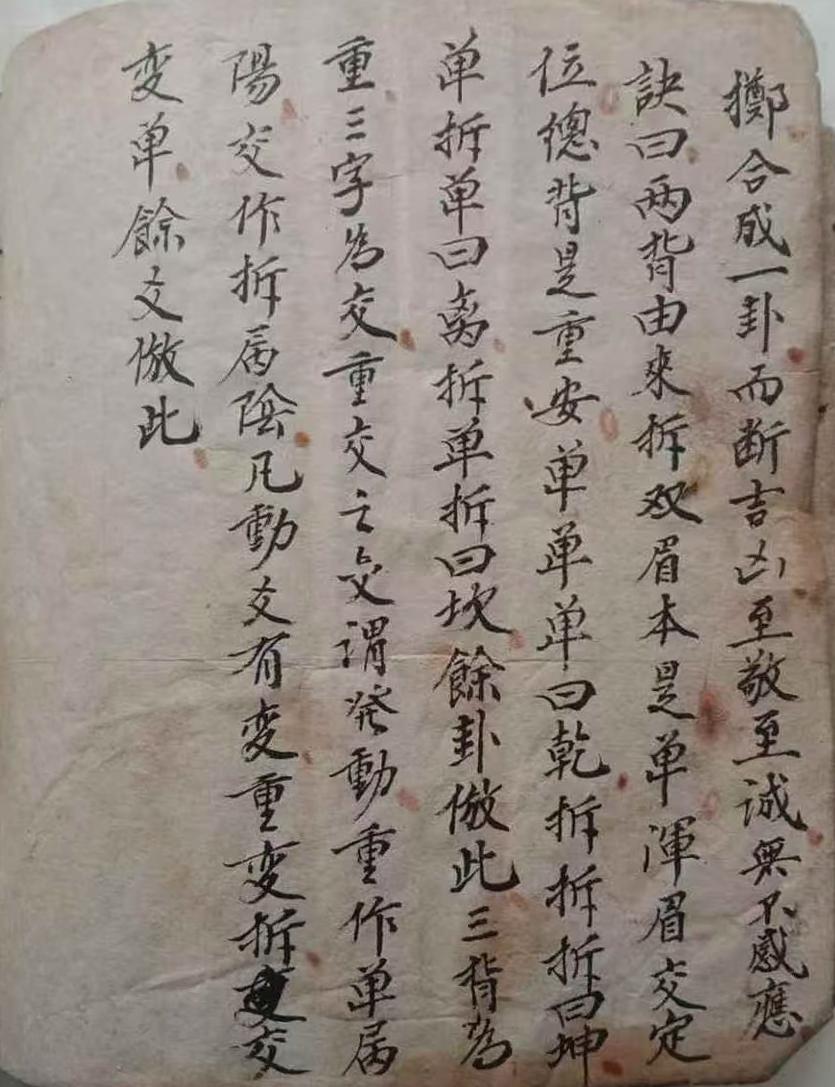 擲合成一卦而断吉凶至敬至诚無不感應
訣曰两背由來拆双眉本是单渾眉交定
位總背是重安单单单曰乾拆拆拆曰坤
单拆单曰离拆单拆曰坎餘卦倣此三背為
重三字為交重交之交謂発動重作单属
陽交作拆属陰凡動爻有变重变拆交
变单餘爻倣此